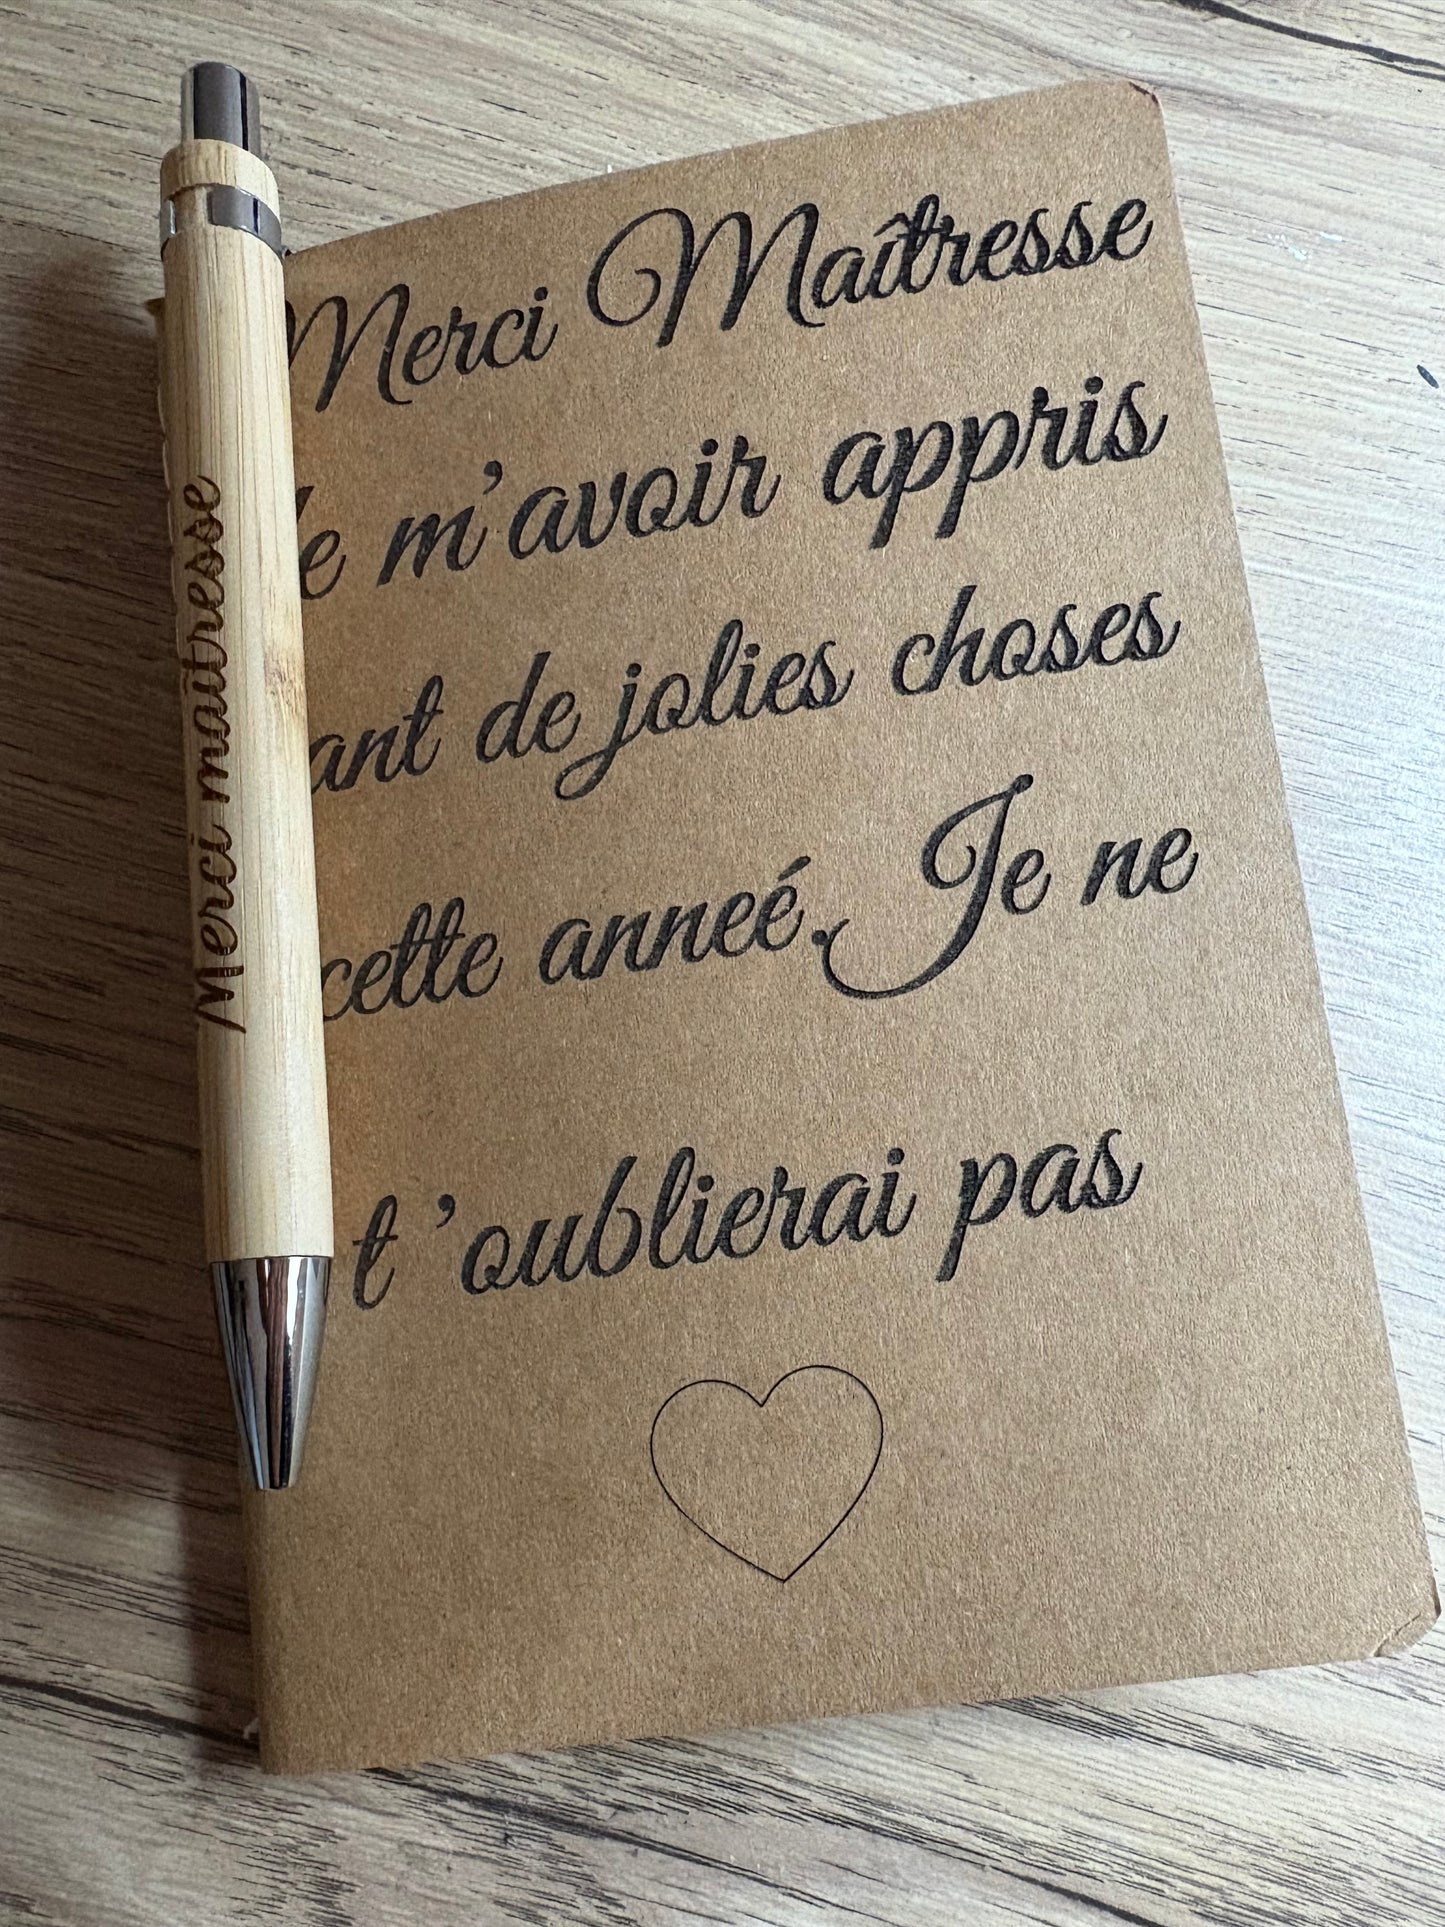 Merci Maîtresse
de m'avoir appris
tant de jolies choses
cette anneé. Je ne
t 'oublierai pas
Merci maîtresse